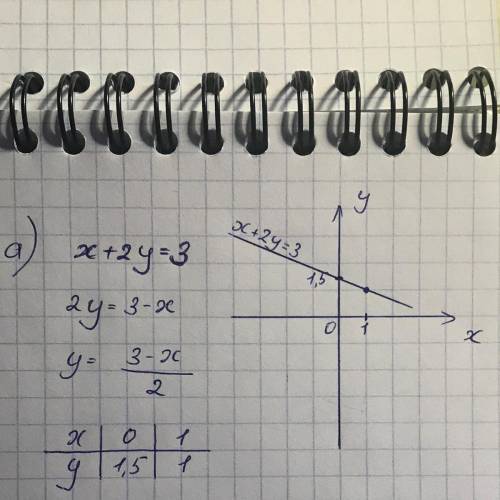 а) x+2y=3
2y= 3-x
y= 3-x / 2
x 0 1
y 1,5 1
y
x+2y=3
1,5
0 1 x